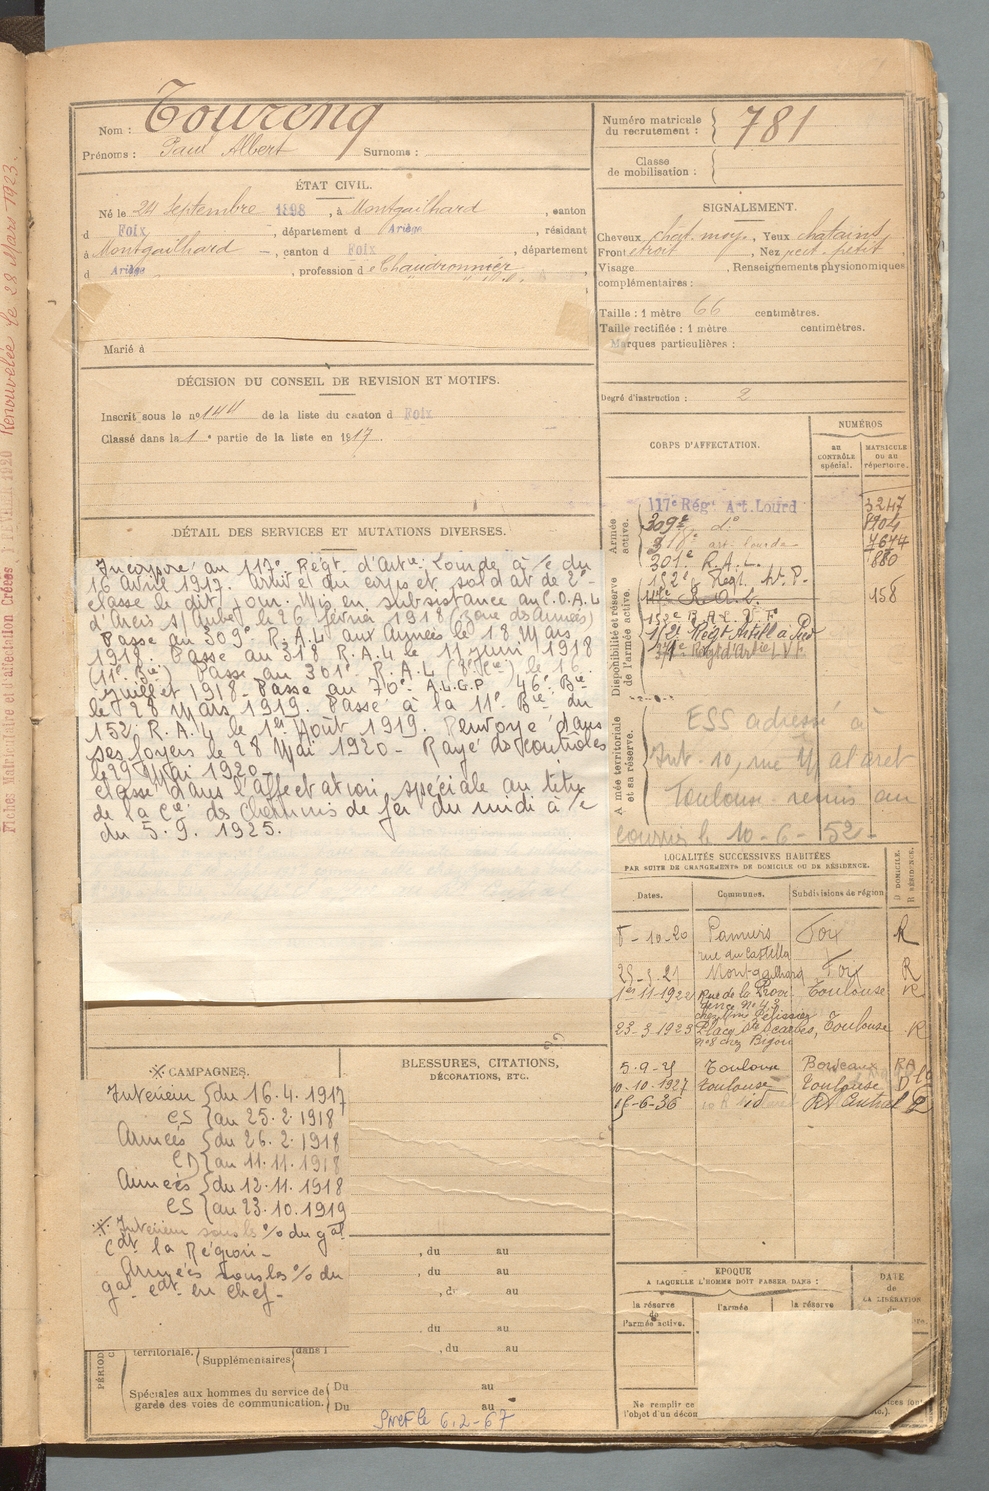 Nom : Tourenq
Prénoms : Paul Albert Surnoms :
Numéro matricule du recrutement : 781
Classe de mobilisation :
ÉTAT CIVIL.
Né le 24 Septembre 1898, à Montgailhard, canton
d Foix, département d Ariège, résidant
à Montgailhard, canton d Foix, département
d Ariège, profession de Chaudronnier
Marié à
SIGNALEMENT.
Cheveux chat. moy., Yeux chatains
Front étroit, Nez rect. petit
Visage , Renseignements physionomiques
complémentaires :
Taille : 1 mètre 66 centimètres.
Taille rectifiée : 1 mètre centimètres.
Marques particulières :
Degré d'instruction : 2
DÉCISION DU CONSEIL DE REVISION ET MOTIFS.
Inscrit sous le no 144 de la liste du canton d Foix
Classé dans la 1e partie de la liste en 1917.
DÉTAIL DES SERVICES ET MUTATIONS DIVERSES.
Incorporé au 117e Régt. d'Artie Lourde à /c du
16 Avril 1917. Arrivé au corps et soldat de 2e
classe le dit jour. Mis en subsistance au C.O.A.L
d'Arcis s/Aube le 26 février 1918 (zone des armées)
Passé au 309e R.A.L aux Armées le 18 Mars
1918. Passé au 318 R.A.L le 11 juin 1918
(11e Bie) Passé au 301e R.A.L le 16
juillet 1918. Passé au 70e A.L.G.P 46e Bie
le 28 Mars 1919. Passé à la 11e Bie du
152 R.A.L le 1er Août 1919. Renvoyé dans
ses foyers le 28 Mai 1920 - Rayé des contrôles
le 29 Mai 1920.
Classé dans l'affectation spéciale au titre
de la Cie des Chemins de fer du midi à /c
du 5.9.1925.
CORPS D'AFFECTATION.
NUMÉROS
au CONTRÔLE spécial.
MATRICULE OU AU répertoire.
Armée active.
117e Régt Art. Lourd 3247
309e do 8204
318e art. lourde 7674
301e R.A.L. 880
Disponibilité et réserve de l'armée active.
182e Régt Ar. P.
R.A.L. 158
153e R.A.L. V.F.
1/2e Régt Artill à Pied
Régt d'Artie L V F
Armée territoriale et sa réserve.
ESS adressé à
Int. 10, rue Malaret
Toulouse - remis au
courrier le 10-6-52 -
LOCALITÉS SUCCESSIVES HABITÉES
PAR SUITE DE CHANGEMENTS DE DOMICILE OU DE RÉSIDENCE.
Dates. Communes. Subdivisions de région D DOMICILE. R RÉSIDENCE.
5-10-20 Pamiers Foix R
rue du Castella
25-5-21 Montgailhard Foix R
1er 11-1922 Rue de la Provi- Toulouse R
dence No 43
chez Mme Pélissier
23-3-1923 Place Ste Scarbes, Toulouse R
no 8 chez Bigou
5-9-25 Toulouse Bordeaux RA
10-10-1927 Toulouse Toulouse D
15-6-36 id
CAMPAGNES.
Intérieur {du 16.4.1917
CS {au 25.2.1918
Armées {du 26.2.1918
CD {au 11.11.1918
Armées {du 12.11.1918
CS {au 23.10.1919
Intérieur sous le % du gal
Cdt la Région -
Armées sous les % du
gal cdt en chef -
BLESSURES, CITATIONS,
DÉCORATIONS, ETC.
, du au
, du au
, du au
, du au
, du au
territoriale. Supplémentaires dans l
Spéciales aux hommes du service de garde des voies de communication. Du au
Du au
EPOQUE
A LAQUELLE L'HOMME DOIT PASSER DANS :
la réserve de l'armée active.
l'armée
la réserve
DATE de LA LIBÉRATION
Ne remplir ce
l'objet d'un décom
le 6.2-67
Fiches Matriculaire et d'affectation Créées 1920 Renouvelée le 28 Mars 1923.